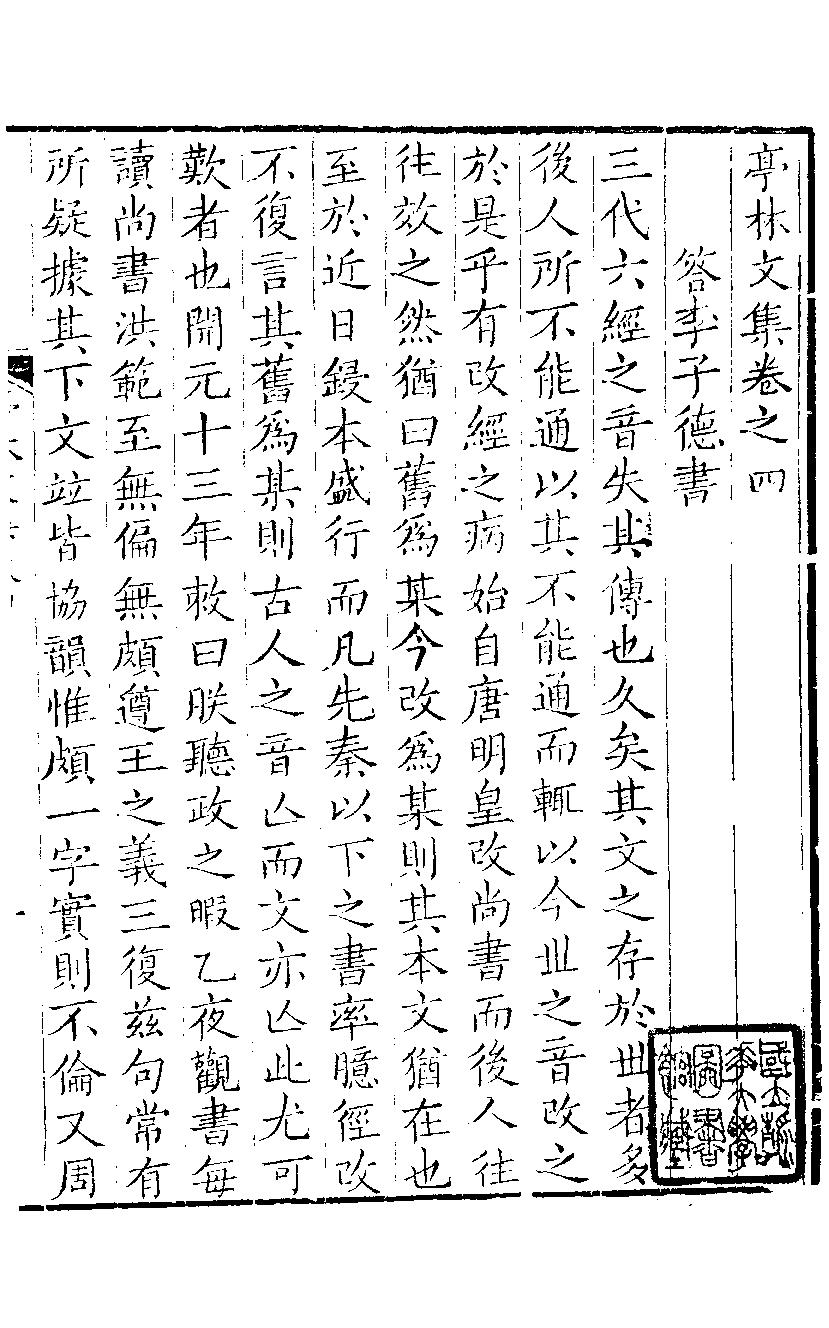 亭林文集卷之四
答李子德書
三代六經之音失其傳也久矣其文之存於世者多
後人所不能通以其不能通而輒以今世之音改之
於是乎有改經之病始自唐明皇改尚書而後人往
往效之然猶曰舊為某今改為某則其本文猶在也
至於近日鋟本盛行而凡先秦以下之書率臆徑改
不復言其舊為某則古人之音亾而文亦亾此尤可
歎者也開元十三年敕曰朕聽政之暇乙夜觀書每
讀尚書洪範至無偏無頗遵王之義三復茲句常有
所疑據其下文竝皆協韻惟頗一字實則不倫又周
國立北平大學圖書館藏